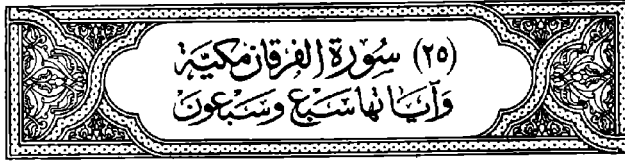 (٢٥) سُورَة الفُرقان مَكيَّة
وَآيَاتها سَبع وَسَبعونَ